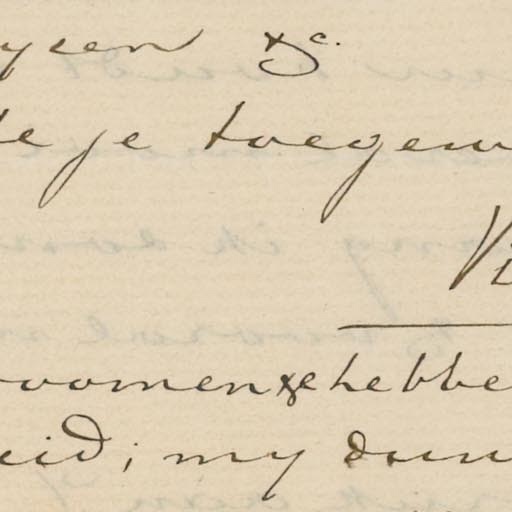 yeen &c.
te je toegew
Vi
oomen & hebbe
eid; my dun